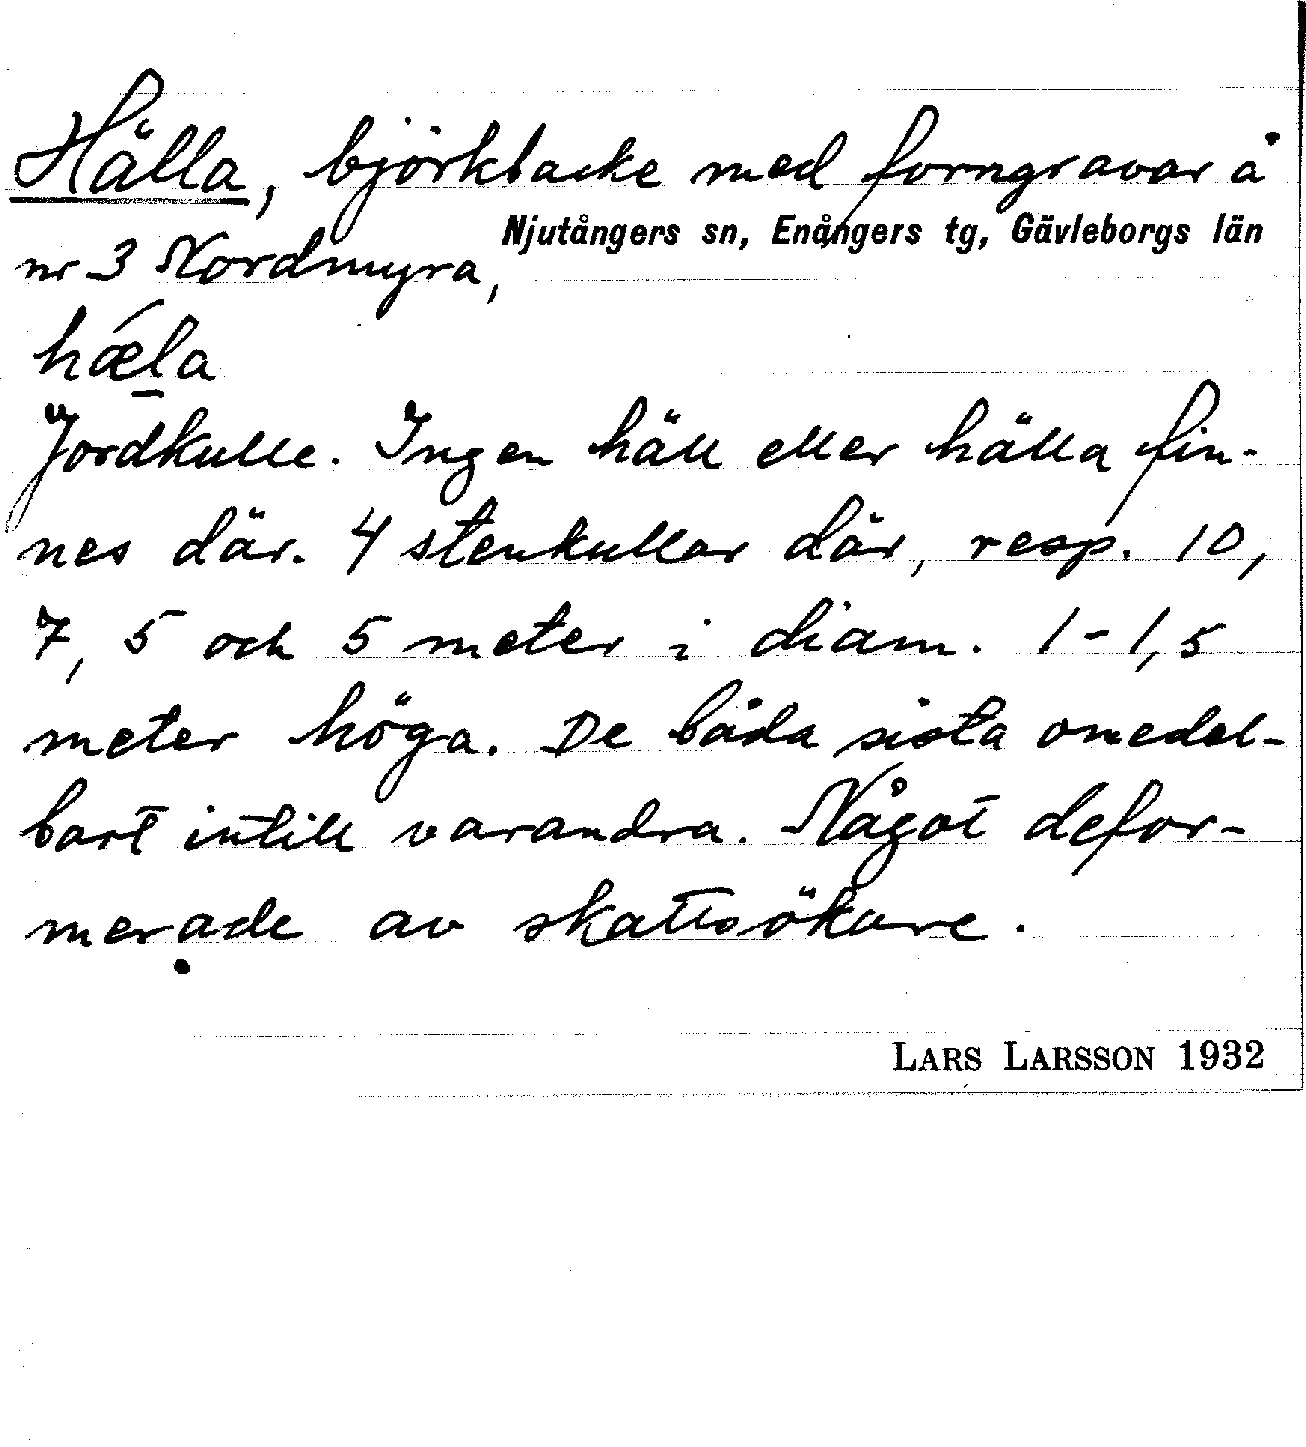 Hälla, björkbacke med forngravar å
Njutångers sn, Enångers tg, Gävleborgs län
nr 3 Nordmyra,
hǽl̲a
Jordkulle. Ingen häll eller hälla fin-
nes där. 4 stenkullar där, resp. 10,
7, 5 och 5 meter i diam. 1-1,5
meter höga. De båda sista omedel-
bart intill varandra. Något defor-
merade av skattsökare.
LARS LARSSON 1932